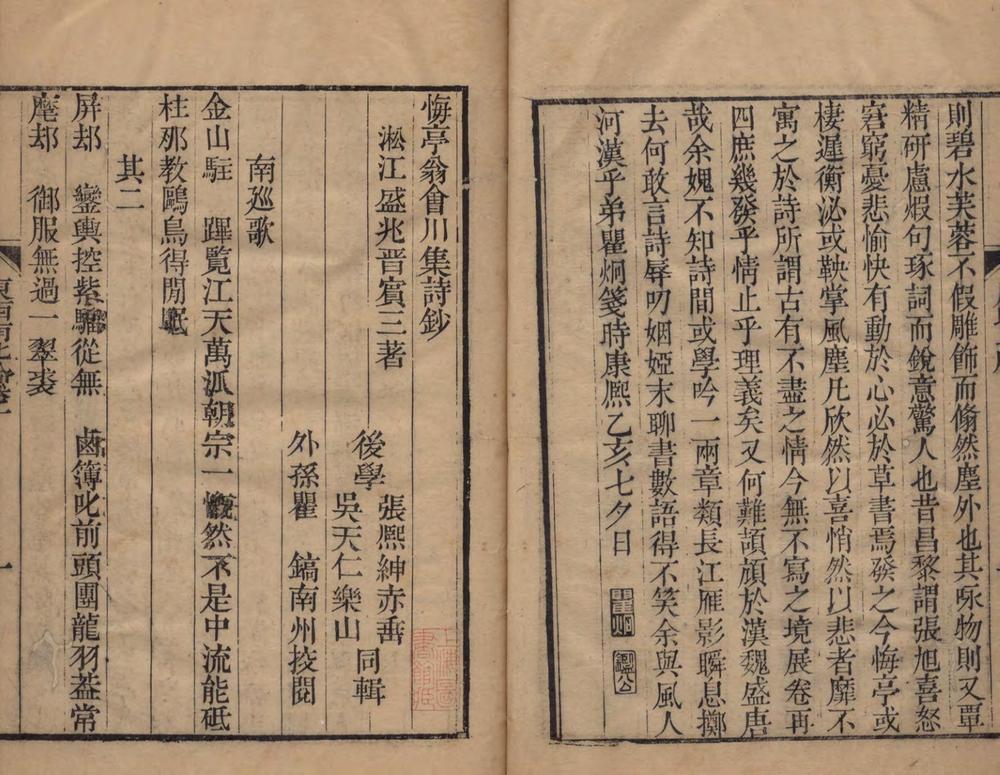 則碧水芙蓉不假雕飾而翛然塵外也其咏物則又覃
精研慮煆句琢詞而銳意驚人也昔昌黎謂張旭喜怒
窘窮憂悲愉快有動於心必於草書焉發之今悔亭或
棲遲衡泌或鞅掌風塵凡欣然以喜悄然以悲者靡不
寓之於詩所謂古有不盡之情今無不寫之境展卷再
四庶幾發乎情止乎理義矣又何難頡頏於漢魏盛唐
哉余媿不知詩間或學吟一兩章類長江雁影瞬息擲
去何敢言詩辱叨姻婭末聊書數語得不笑余與風人
河漢乎弟瞿炯箋時康熈乙亥七夕日
悔亭翁會川集詩鈔
淞江盛兆晋賓三著
後學
張熈紳赤垂
吳天仁樂山
同輯
外孫瞿 鎬南州挍閱
南廵歌
金山駐 蹕覽江天萬派朝宗一慨然不是中流能砥
柱那教鷗鳥得閒眠
其二
屏却 鑾輿控紫騮從無 鹵簿叱前頭團龍羽葢常
麾却 御服無過一翠裘
一